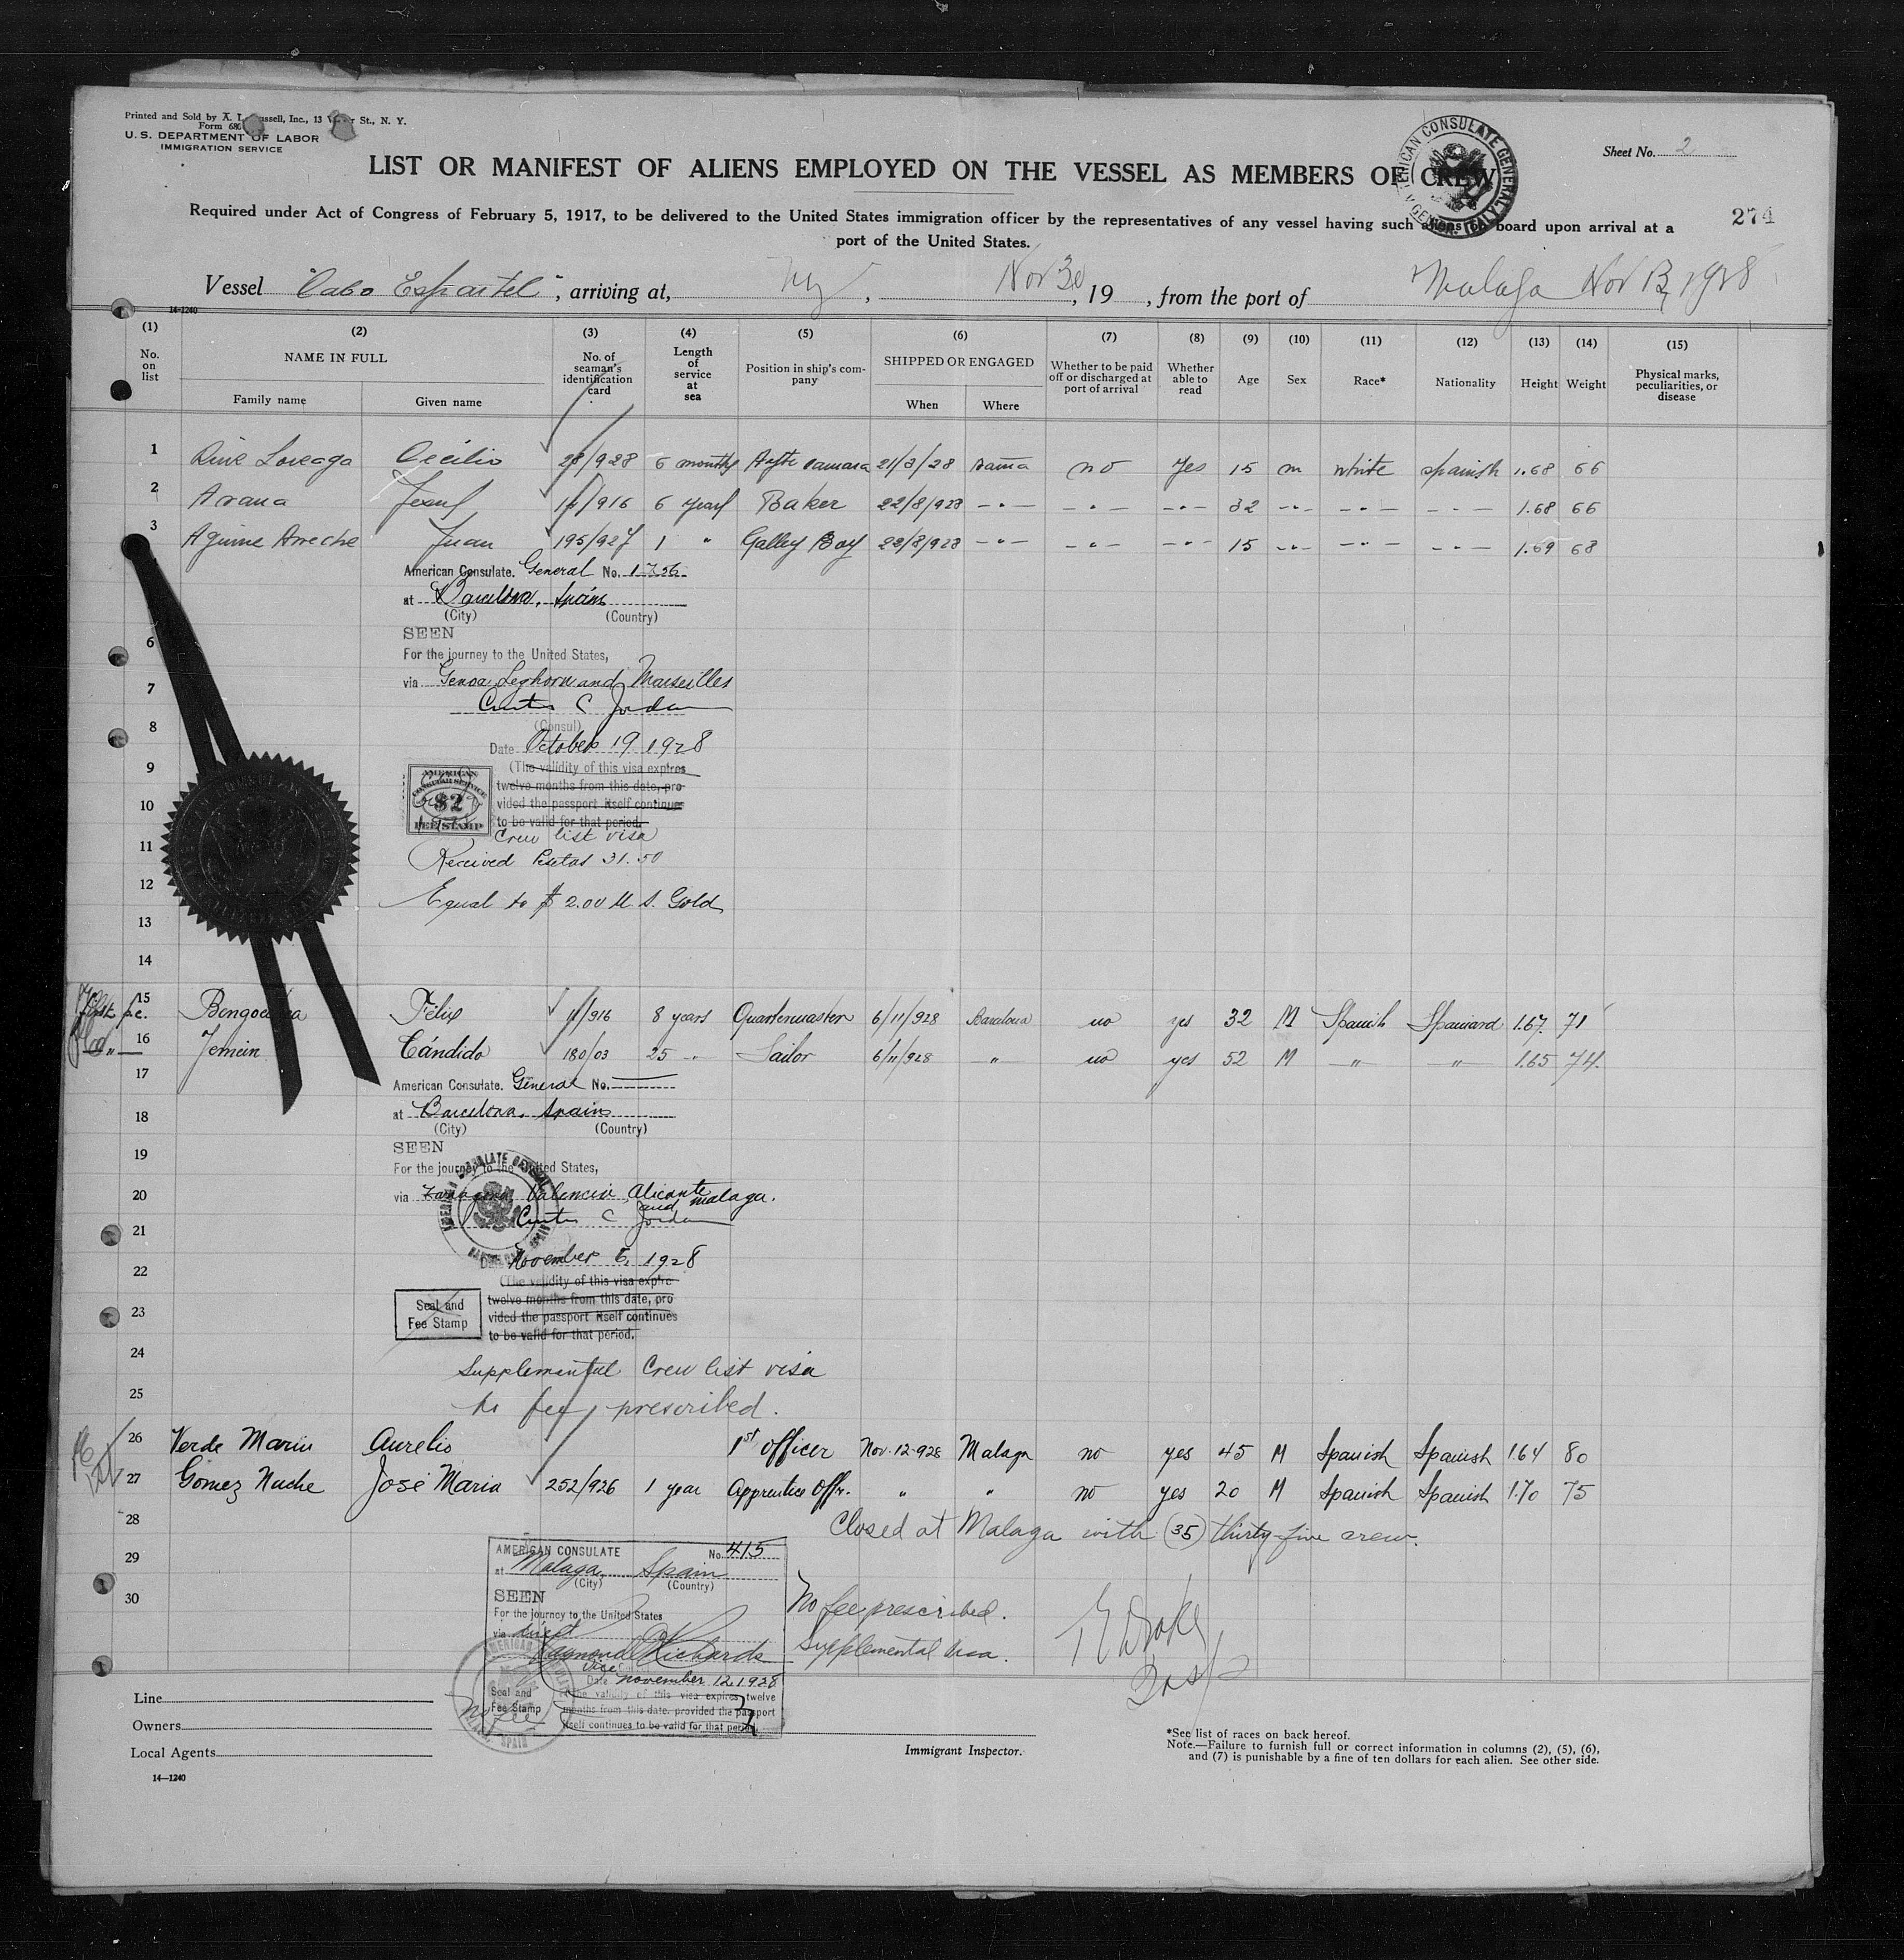 Printed and Sold by A. L. ussell, Inc., 13 St., N. Y.
Form 686
U. S. DEPARTMENT OF LABOR
IMMIGRATION SERVICE
Sheet No. 2
LIST OR MANIFEST OF ALIENS EMPLOYED ON THE VESSEL AS MEMBERS OF CREW
AMERICAN CONSULATE GENERAL GENOA ITALY
Required under Act of Congress of February 5, 1917, to be delivered to the United States immigration officer by the representatives of any vessel having such aliens on board upon arrival at a
port of the United States.
274
Vessel "Cabo Espartel", arriving at, NY, Nov 30, 19 , from the port of Malaga Nov 13, 1928
14-1240
(1) (2) (3) (4) (5) (6) (7) (8) (9) (10) (11) (12) (13) (14) (15)
No. on list
NAME IN FULL
Family name
Given name
No. of seaman's identification card
Length of service at sea
Position in ship's company
SHIPPED OR ENGAGED
When
Where
Whether to be paid off or discharged at port of arrival
Whether able to read
Age
Sex
Race*
Nationality
Height
Weight
Physical marks, peculiarities, or disease
1 Cecilio 28/928 6 months 21/8/28 no yes 15 m white spanish 1.68 66
2 Arana 6 years Baker 22/8/928 -"- -"- -"- 32 -"- -"- -"- 1.68 66
3 Aguirre Arreche Juan 195/927 1 " Galley Boy 22/8/928 -"- -"- -"- 15 -"- -"- -"- 1.69 68
American Consulate. General No. 1756
at Barcelona, Spain
(City) (Country)
SEEN
6
For the journey to the United States,
via Genoa Leghorn and Marseilles
7
Curtis C Jordan
(Consul)
8
Date October 19 1928
9
(The validity of this visa expires
twelve months from this date, pro-
vided the passport itself continues
to be valid for that period.
AMERICAN CONSULAR SERVICE $2 FEE STAMP
10
Crew list visa
11
Received Pesetas 31.50
12
Equal to $ 2.00 U. S. Gold
13
14
15 Bengoechea Félix 11/916 8 years Quartermaster 6/11/928 Barcelona no yes 32 M Spanish Spaniard 1.67. 71
16 Jemein Cándido 180/03 25 " Sailor 6/11/928 " no yes 52 M " " 1.65 74.
17
American Consulate. General No.
at Barcelona, Spain
(City) (Country)
18
SEEN
19
For the journey to the United States,
via Tarragona, Valencia, Alicante and Malaga.
20
Curtis C Jordan
21
Date November 6, 1928
22
(The validity of this visa expire
twelve months from this date, pro
vided the passport itself continues
to be valid for that period.
Seal and
Fee Stamp
23
24
Supplemental Crew list visa
25
No fee prescribed.
26 Verde Marin Aurelio 1st officer Nov. 12-928 Malaga no yes 45 M Spanish Spanish 1.64 80
27 Gomez Nuche José Maria 252/926 1 year Apprentice Offr. " " no yes 20 M Spanish Spanish 1.70 75
28
Closed at Malaga with (35) thirty-five crew.
29
30
AMERICAN CONSULATE No. 415
at Malaga, Spain
(City) (Country)
SEEN
For the journey to the United States
via direct
Raymond Richards
Vice
Date november 12 1928
Seal and
Fee Stamp
No fee
The validity of this visa expires twelve
months from this date, provided the passport
itself continues to be valid for that period
No fee prescribed.
Supplemental visa.
Line
Owners
Local Agents
14—1240
Immigrant Inspector.
*See list of races on back hereof.
Note.—Failure to furnish full or correct information in columns (2), (5), (6),
and (7) is punishable by a fine of ten dollars for each alien. See other side.